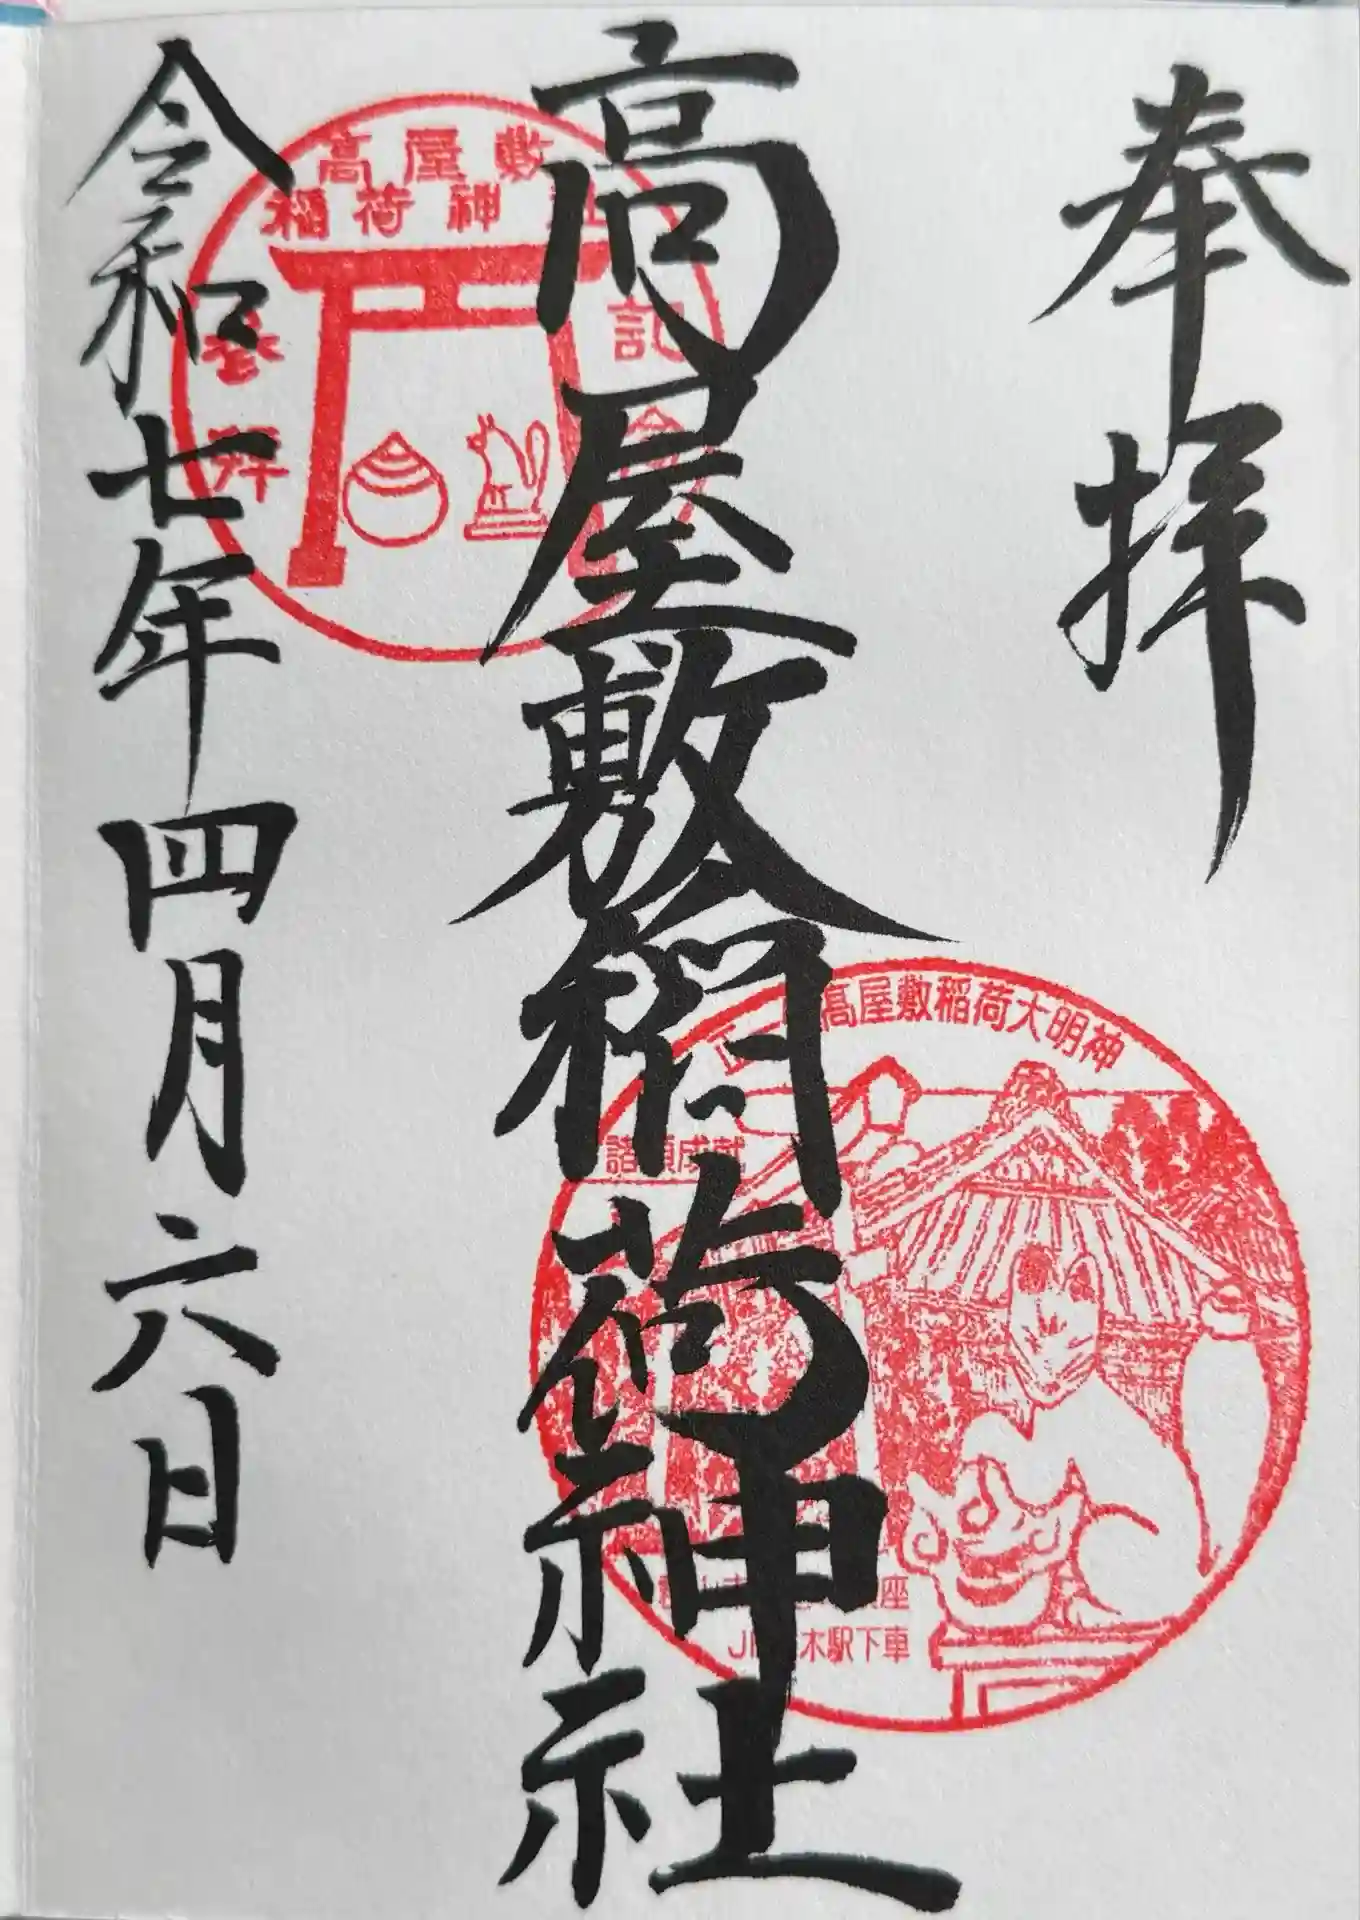 奉拝
高屋敷稲荷神社
令和七年四月六日
高屋敷
稲荷神社
参拝
記念
正一位高屋敷稲荷大明神
諸願成就
座
木駅下車